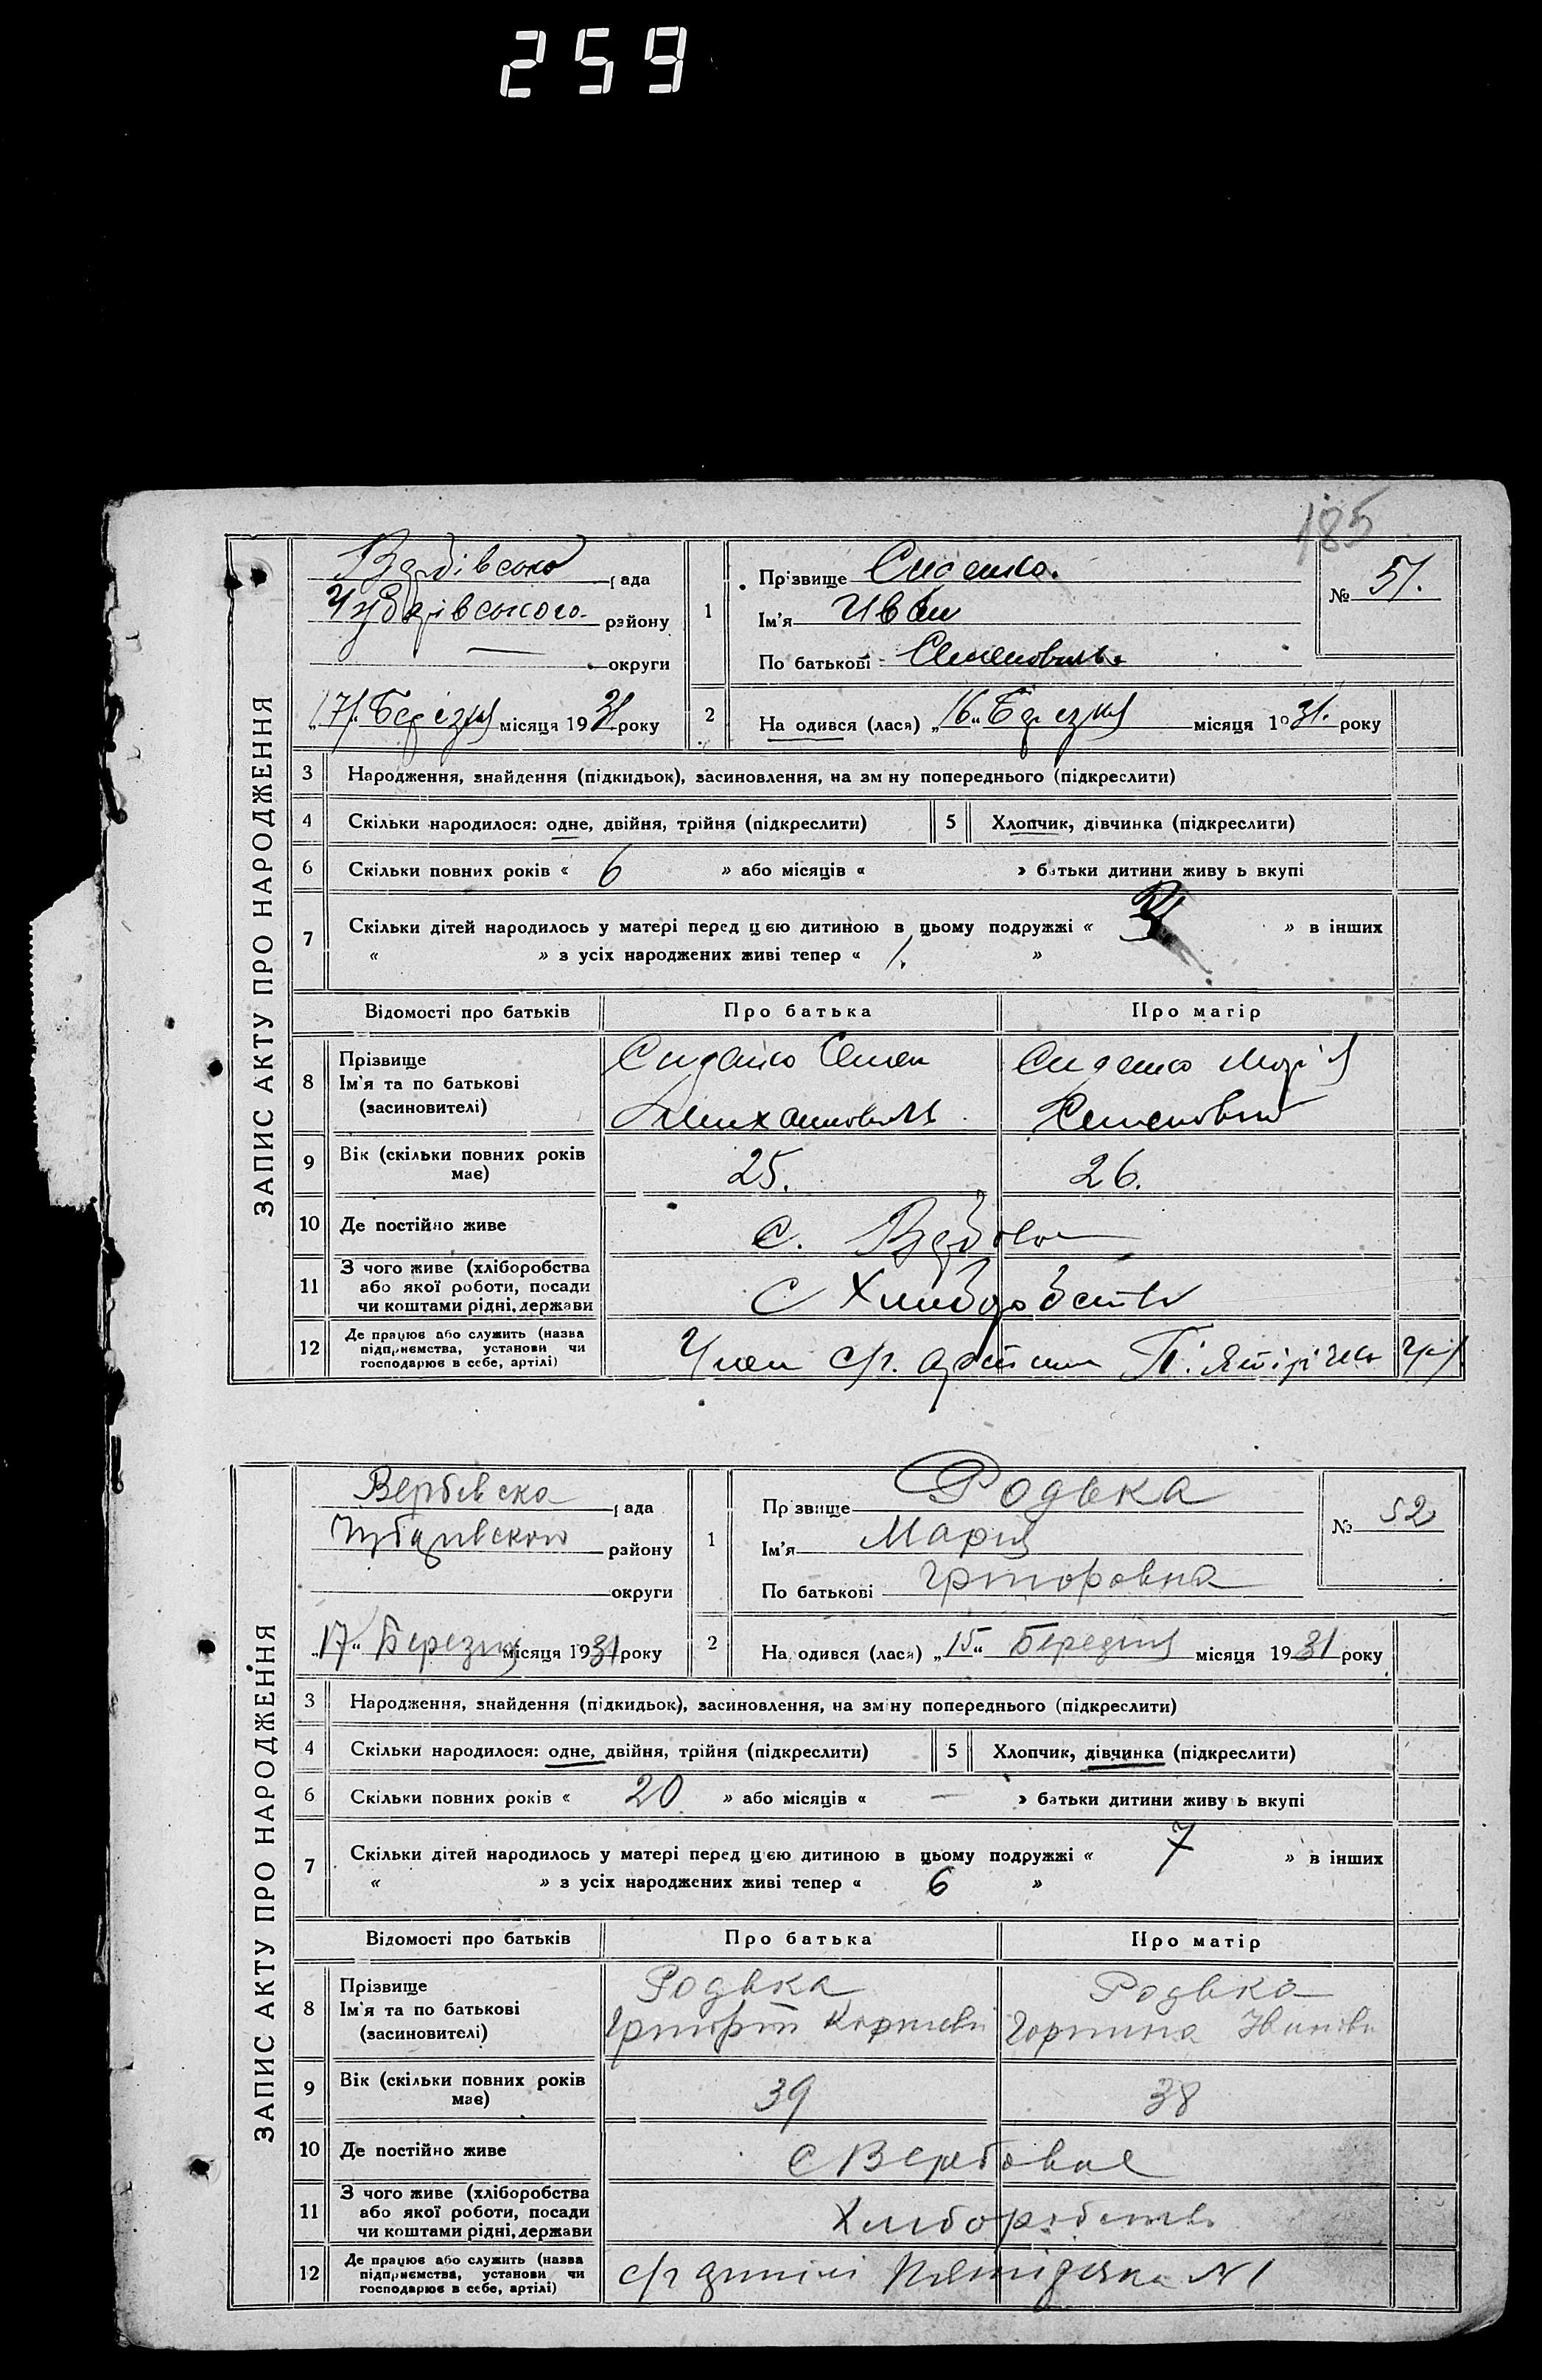 259
185
ЗАПИС АКТУ ПРО НАРОДЖЕННЯ
Вербівська рада
Чубарівського району
— округи
„17" Березня місяця 1931 року
1 Прізвище
Ім'я Иван
По батькові Семенович.
№ 51.
2 На одився (лася) „16" Березня місяця 1931. року
3 Народження, знайдення (підкидьок), засиновлення, на зміну попереднього (підкреслити)
4 Скільки народилося: одне, двійня, трійня (підкреслити)
5 Хлопчик, дівчинка (підкреслити)
6 Скільки повних років « 6 » або місяців « » батьки дитини живу ь вкупі
7 Скільки дітей народилось у матері перед цією дитиною в цьому подружжі « » в інших
« » з усіх народжених живі тепер « 1. »
Відомості про батьків Про батька Про матір
8 Прізвище
Ім'я та по батькові
(засиновителі)
Семен
Михайлович
Марія
Семеновна
9 Вік (скільки повних років має) 25. 26.
10 Де постійно живе с. Вербове
11 З чого живе (хліборобства
або якої роботи, посади
чи коштами рідні, держави
С Хлиборобства
12 Де працює або служить (назва
підприємства, установи чи
господарює в себе, артілі)
Член с/г. артили П'ятірічка
ЗАПИС АКТУ ПРО НАРОДЖЕННЯ
Вербівска рада
Чубарівского району
округи
„17" Березня місяця 1931 року
1 Прізвище Родька
Ім'я Мария
По батькові Григоровна
№ 52
2 На одився (лася) „15" Березня місяця 1931 року
3 Народження, знайдення (підкидьок), засиновлення, на зміну попереднього (підкреслити)
4 Скільки народилося: одне, двійня, трійня (підкреслити)
5 Хлопчик, дівчинка (підкреслити)
6 Скільки повних років « 20 » або місяців « — » батьки дитини живу ь вкупі
7 Скільки дітей народилось у матері перед цією дитиною в цьому подружжі « 7 » в інших
« » з усіх народжених живі тепер « 6 »
Відомості про батьків Про батька Про матір
8 Прізвище
Ім'я та по батькові
(засиновителі)
Родька
Григорій
Родька
Горпина Іванівн
9 Вік (скільки повних років має) 39 38
10 Де постійно живе с Вербовае
11 З чого живе (хліборобства
або якої роботи, посади
чи коштами рідні, держави
Хлиборобство
12 Де працює або служить (назва
підприємства, установи чи
господарює в себе, артілі)
с/г артілі Пятирічка N 1